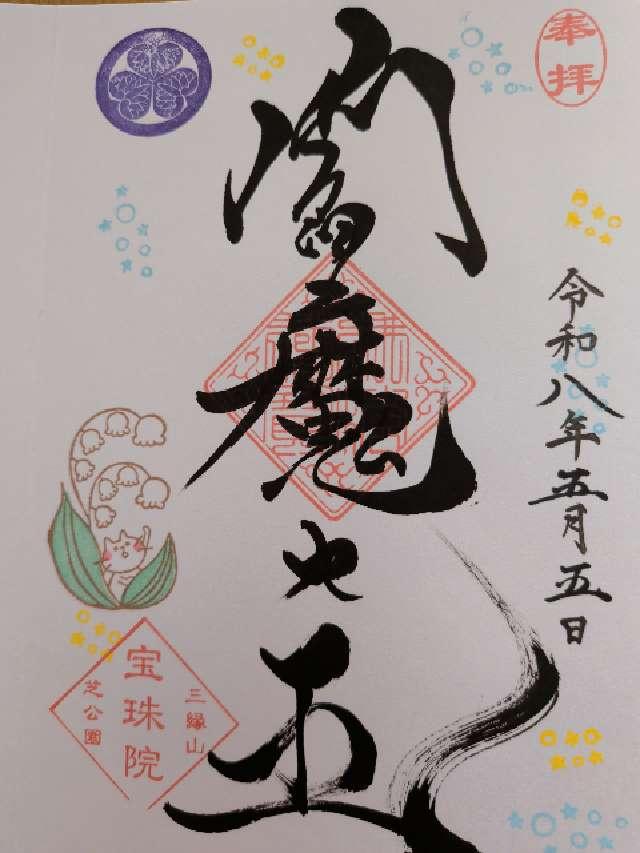 奉拝
令和八年五月五日
閻魔大王
三縁山
宝珠院
芝公園